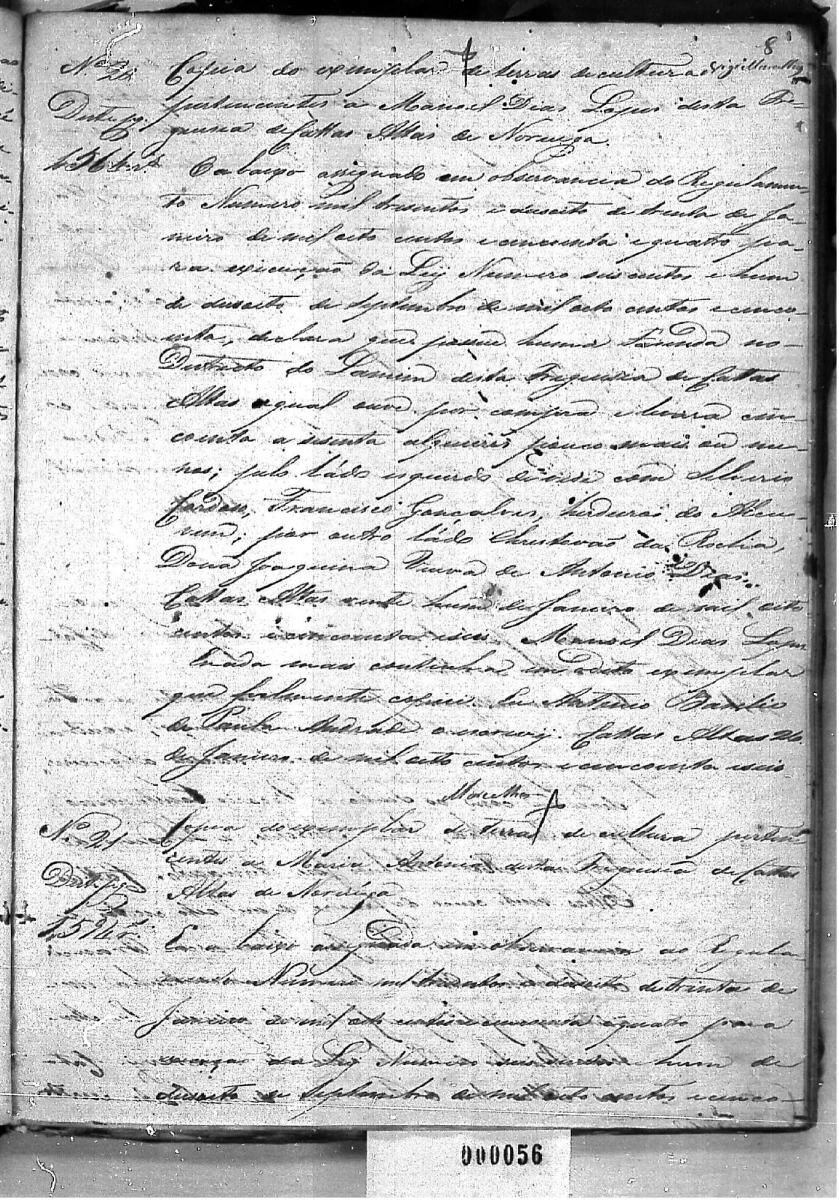 8
Nº 20 Copia do exemplar de terras de cultura
Dest. pg. pertencentes a Manoel Dias Lopes desta Fre-
guesia de Cattas Altas de Noruega.
1564 rs
O a baixo assignado em observancia do Regulamen-
to Numero mil tresentos e desoito de trinta de Ja-
neiro de mil oito centos e cincoenta e quatro pa-
ra execução da Ley Numero seis centos e hum
de desoito de Septembro de mil oito centos e cinco-
enta, declara que possue huma Fasenda no
Districto do Lamim desta Freguesia de Cattas
Altas a qual ouve por compra e leva cin-
coenta a sesenta alqueires pouco mais ou me-
nos; pelo lado esquerdo devide com Silverio
Cardoso, Francisco Gonçalves, herdeiros do
por outro lado Christovão da Rocha,
Dona Joaquina Viuva de Antonio Dias.
Cattas Altas vinte hum de Janeiro de mil oito
centos e cincoenta e seis. Manoel Dias Lopes
Nada mais continha em o dito exemplar
que fielmente copiei. Eu Antonio Basilio
de Paula Andrade o escrevy. Cattas Altas 26
de Janeiro de mil oito centos e cincoenta e seis
Nº 21 Copia do exemplar de terras de cultura perten-
centes a Maria Antonia desta Freguesia de Cattas
Dest. pg. Altas de Noruega
Eu a baixo assignada em observancia do Regula-
mento Numero mil tresentos e desoito de trinta de
Janeiro de mil oito centos e cincoenta e quatro para
execução da Ley Numero seis centos e hum de
desoito de Septembro de mil oito centos e cinco-
000056